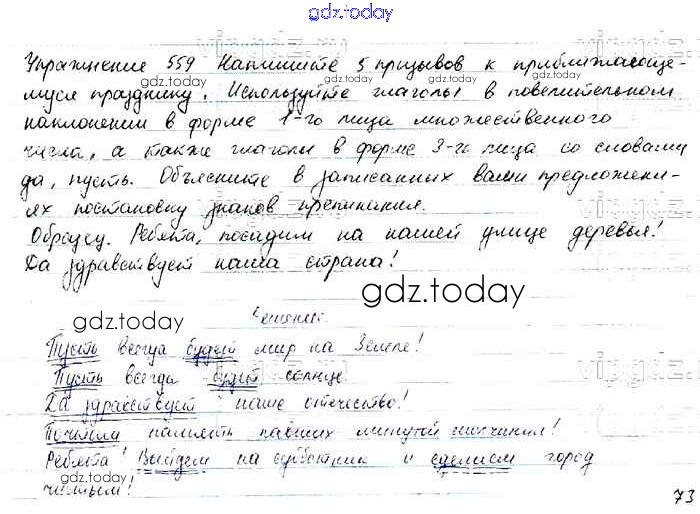 gdz.today
Упражнение 559 Напишите 5 призывов к приближающе-
муся празднику. Используйте глаголы в повелительном
наклонении в форме 1-го лица множественного
числа, а также глаголы в форме 3-го лица со словами
да, пусть. Объясните в записанных вами предложени-
ях постановку знаков препинания.
Образец. Ребята, посадим на нашей улице деревья!
Да здравствует наша страна!
gdz.today
Решение.
Пусть всегда будет мир на Земле!
Пусть всегда будет солнце.
Да здравствует наше отечество!
Почтим память павших минутой молчания!
Ребята! Выйдем на субботник и сделаем город
чистым!
73